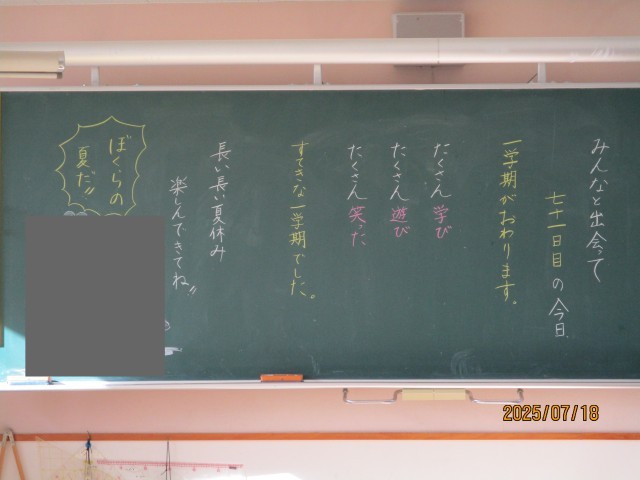 みんなと出会って
七十一日目の今日、
一学期がおわります。
たくさん学び
たくさん遊び
たくさん笑った
すてきな一学期でした。
長い長い夏休み
楽しんできてね!!
ぼくらの
夏だ!!
2025/07/18